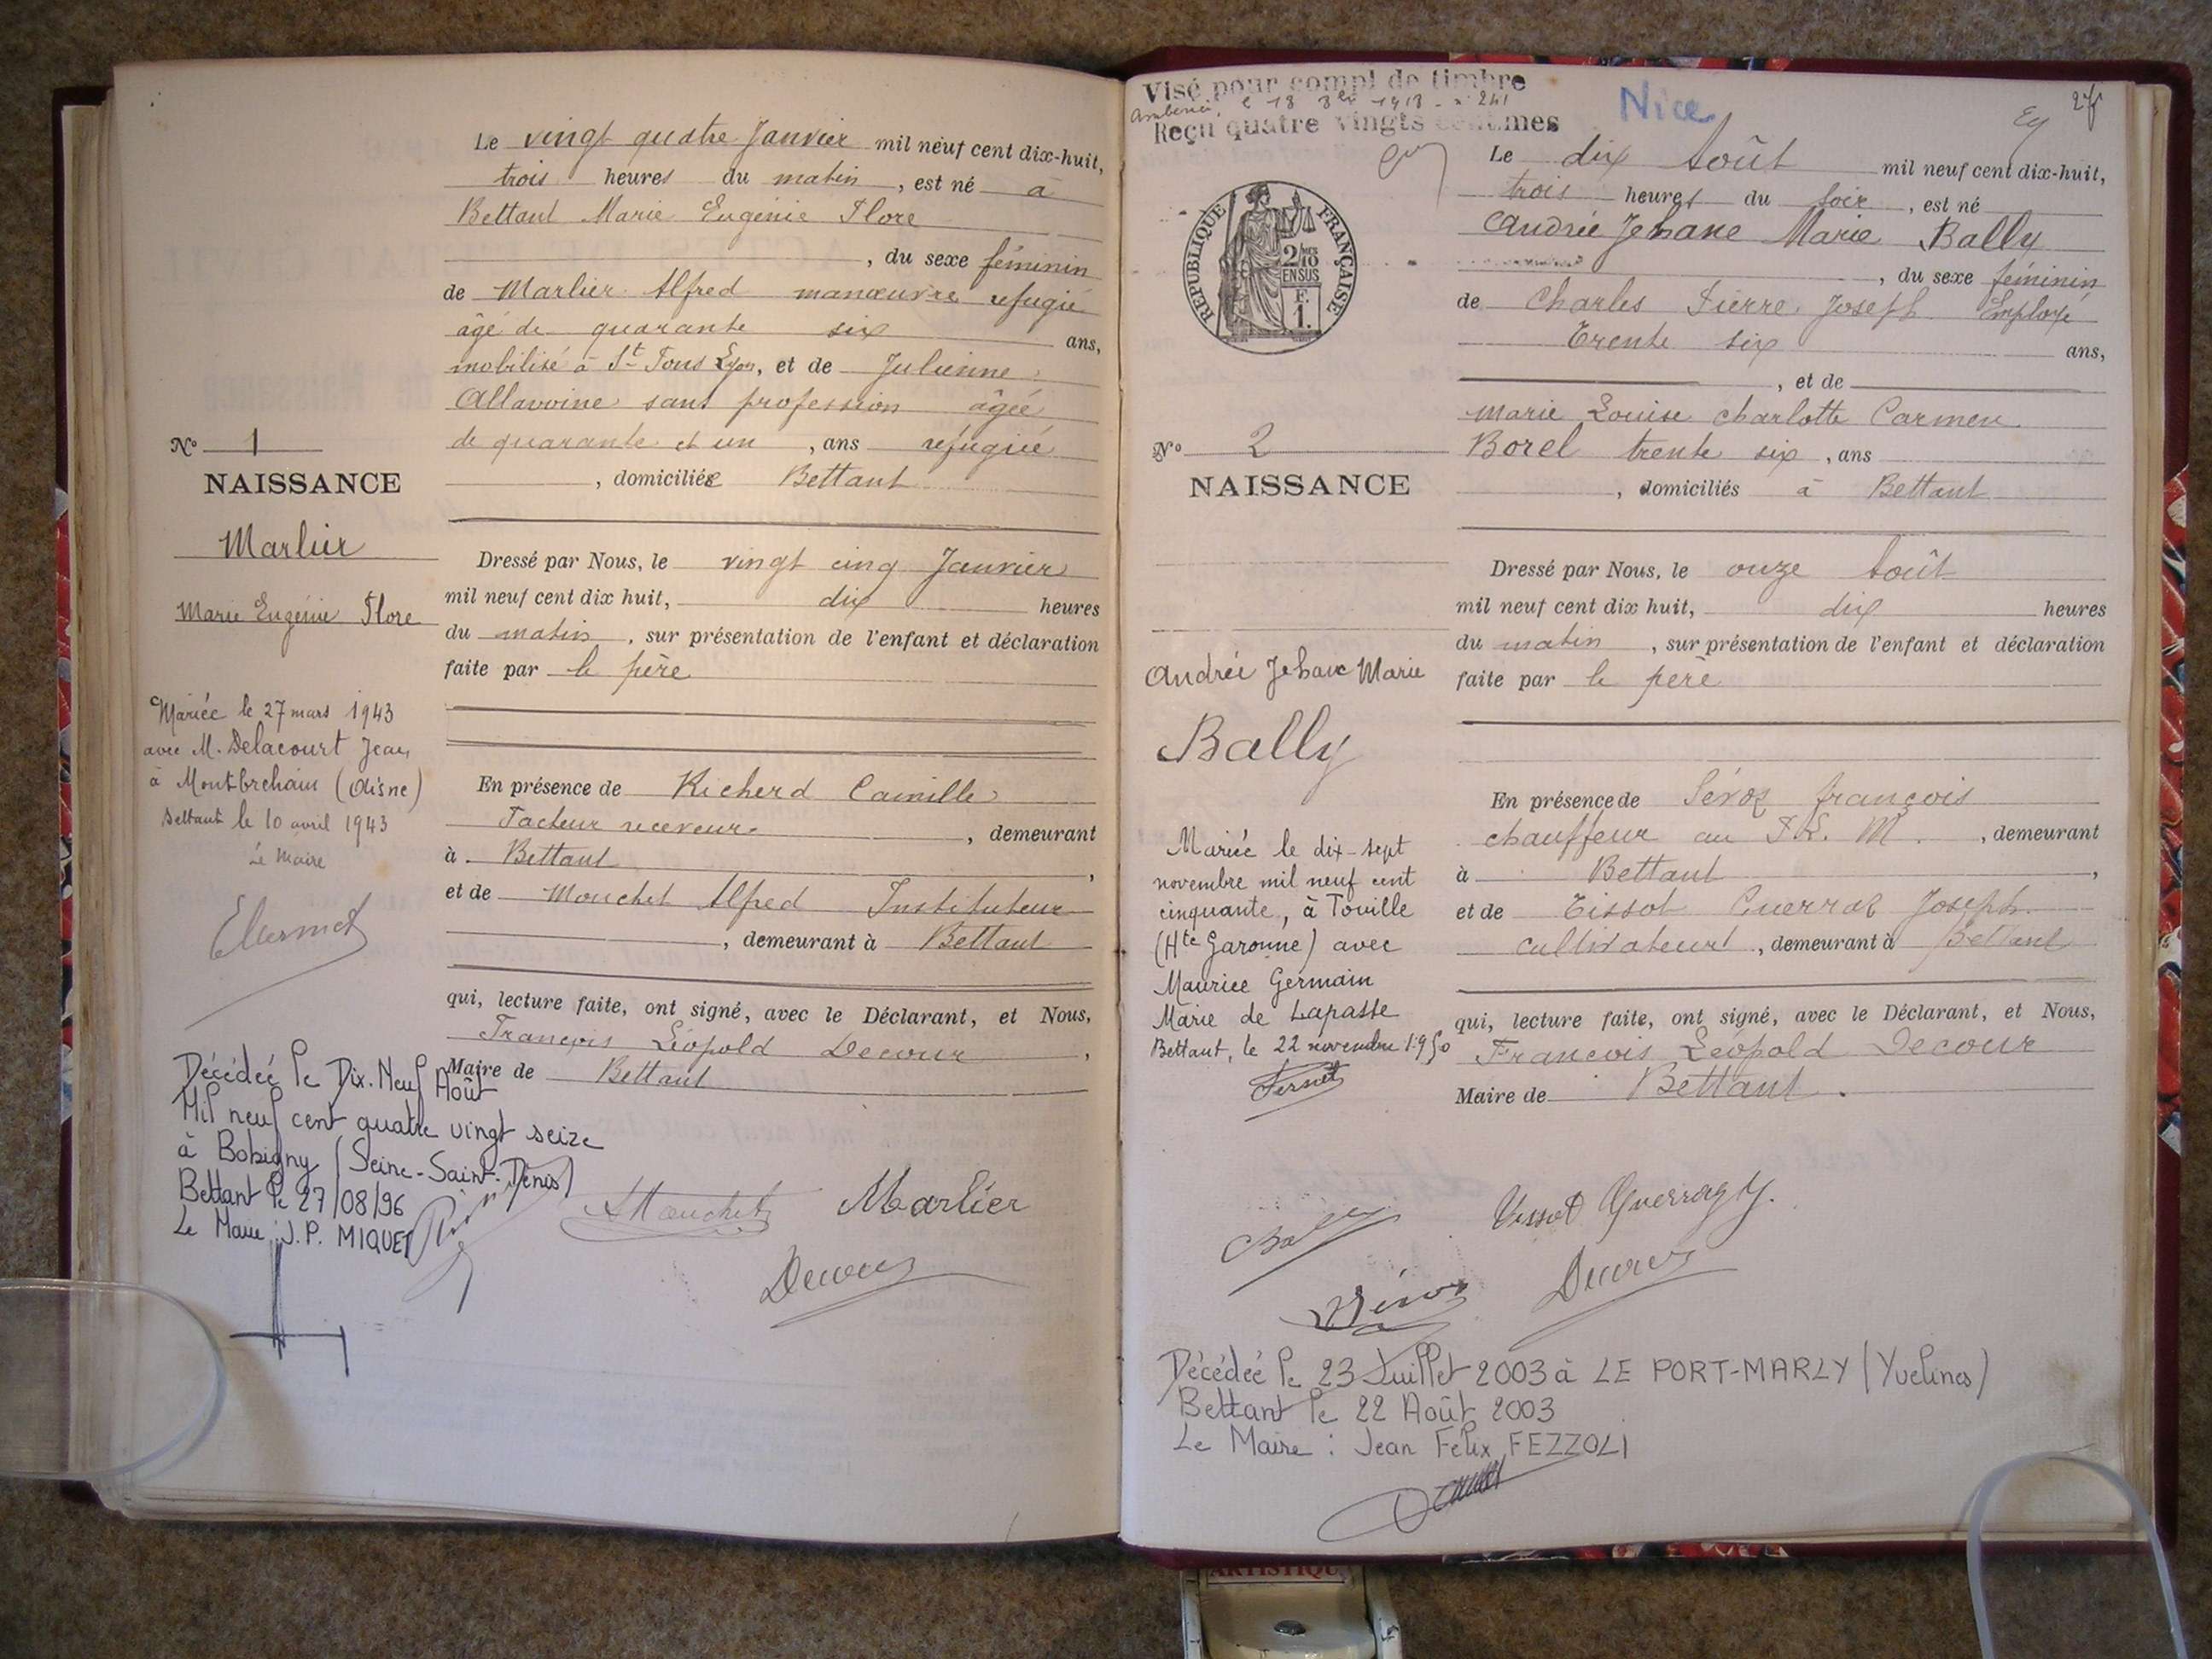 Le vingt quatre Janvier mil neuf cent dix-huit,
trois heures du matin, est né à
Bettant Marie Eugénie Flore
, du sexe féminin
de Marlier Alfred manœuvre refugié
âgé de quarante six ans,
mobilisé à St Fons Lyon, et de Julienne
Allavoine sans profession âgée
de quarante et un, ans refugiée
, domiciliés Bettant
Dressé par Nous, le vingt cinq Janvier
mil neuf cent dix huit, dix heures
du matin, sur présentation de l'enfant et déclaration
faite par le père
En présence de Richerd Camille
Facteur receveur, demeurant
à Bettant,
et de Mouchet Alfred Instituteur
, demeurant à Bettant
qui, lecture faite, ont signé, avec le Déclarant, et Nous,
François Léopold Decour,
Maire de Bettant
Nº 1
NAISSANCE
Marlier
Marie Eugénie Flore
Mariée le 27 mars 1943
avec M. Delacourt Jean
à Montbrehain (Aisne)
Bettant le 10 avril 1943
Le Maire
Décédée le Dix-Neuf Août
Mil neuf cent quatre vingt seize
à Bobigny (Seine-Saint-Denis)
Bettant le 27/08/96
Le Maire : J.P. MIQUET
AMouchet Marlier
Decour
Visé pour compl de timbre
Reçu quatre vingts centimes
Nice
27
RÉPUBLIQUE FRANÇAISE
2/10
EN SUS
F.
1.
Le dix Août mil neuf cent dix-huit,
trois heures du soir, est né
Andrée Jehane Marie Bally
, du sexe féminin
de Charles Pierre Joseph Employé
Trente six ans,
, et de
Marie Louise Charlotte Carmen
Borel trente six, ans
, domiciliés à Bettant
Dressé par Nous, le onze Août
mil neuf cent dix huit, dix heures
du matin, sur présentation de l'enfant et déclaration
faite par le père
En présence de Séroz françois
chauffeur au P.L.M., demeurant
à Bettant,
et de Tissot Guerraz Joseph
cultivateurs, demeurant à Bettant
qui, lecture faite, ont signé, avec le Déclarant, et Nous,
Francois Léopold Decour
Maire de Bettant.
Nº 2
NAISSANCE
Andrée Jehane Marie
Bally
Mariée le dix-sept
novembre mil neuf cent
cinquante, à Touille
(Hte Garonne) avec
Maurice Germain
Marie de Lapasse
Bettant, le 22 novembre 1950
Bally Tissot Guerraz J.
Séroz Decour
Décédée le 23 Juillet 2003 à LE PORT-MARLY (Yvelines)
Bettant le 22 Août 2003
Le Maire : Jean Félix FEZZOLI
ARTISTIQU